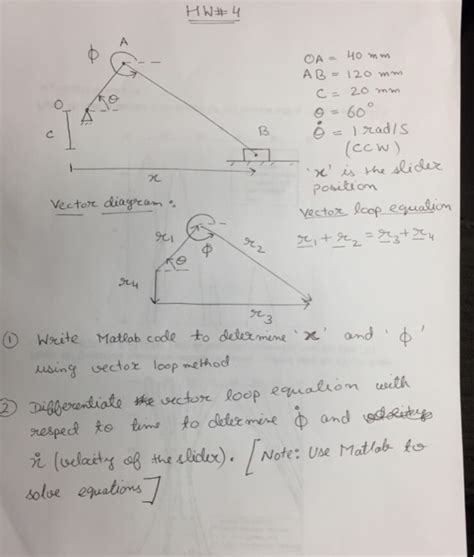 HW#4
A
ϕ
OA = 40 mm
AB = 120 mm
C = 20 mm
θ = 60°
θ̇ = 1 rad/s
(CCW)
O
θ
C
B
x
'x' is the slider
position
Vector diagram:
Vector loop equation
r1 + r2 = r3 + r4
r1
ϕ
r2
θ
r4
r3
① Write Matlab code to determine 'x' and 'ϕ'
using vector loop method
② Differentiate the vector loop equation with
respect to time to determine ϕ̇ and
ẋ (velocity of the slider). [Note: Use Matlab to
solve equations]